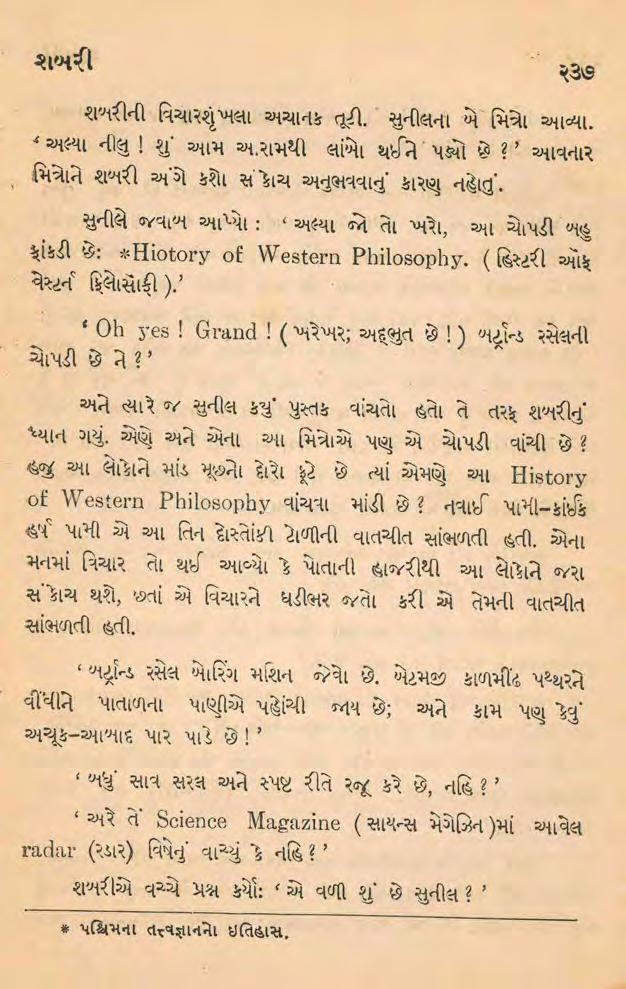 શબરી
૨૩૭
શબરીની વિચારશૃંખલા અચાનક તૂટી. સુનીલના બે મિત્રો આવ્યા.
‘ અલ્યા નીલુ ! શું આમ અ.રામથી લાંબો થઈને પડ્યો છે ? ’ આવનાર
મિત્રોને શબરી અંગે કશો સંકોચ અનુભવવાનું કારણ નહોતું.
સુનીલે જવાબ આપ્યો : ‘ અલ્યા જો તો ખરો, આ ચોપડી બહુ
ફાંકડી છે: *Hiotory of Western Philosophy. ( હિસ્ટરી ઑફ
વેસ્ટર્ન ફિલોસૉફી ).’
‘ Oh yes ! Grand ! ( ખરેખર; અદ્દભુત છે ! ) બર્ટ્રાન્ડ રસેલની
ચોપડી છે ને ? ’
અને ત્યારે જ સુનીલ કયું પુસ્તક વાંચતો હતો તે તરફ શબરીનું
ધ્યાન ગયું. એણે અને એના આ મિત્રોએ પણ એ ચોપડી વાંચી છે ?
હજુ આ લોકોને માંડ મૂછનો દોરો ફૂટે છે ત્યાં એમણે આ History
of Western Philosophy વાંચવા માંડી છે ? નવાઈ પામી–કાંઈક
હર્ષ પામી એ આ તિન દોસ્તોંકી ટોળીની વાતચીત સાંભળતી હતી. એના
મનમાં વિચાર તો થઈ આવ્યો કે પોતાની હાજરીથી આ લોકોને જરા
સંકોચ થશે, છતાં એ વિચારને ઘડીભર જતો કરી એ તેમની વાતચીત
સાંભળતી હતી.
‘ બર્ટ્રાન્ડ રસેલ બોરિંગ મશિન જેવો છે. બેટમજી કાળમીંઢ પથ્થરને
વીંધીને પાતાળના પાણીએ પહોંચી જાય છે; અને કામ પણ કેવું
અચૂક–આબાદ પાર પાડે છે ! ’
‘ બધું સાવ સરલ અને સ્પષ્ટ રીતે રજૂ કરે છે, નહિ ? ’
‘ અરે તેં Science Magazine ( સાયન્સ મેગેઝિન )માં આવેલ
radar (રડાર) વિષેનું વાચ્યું કે નહિ ? ’
શબરીએ વચ્ચે પ્રશ્ન કર્યો: ‘ એ વળી શું છે સુનીલ ? ’
* પશ્ચિમના તત્ત્વજ્ઞાનનો ઇતિહાસ.